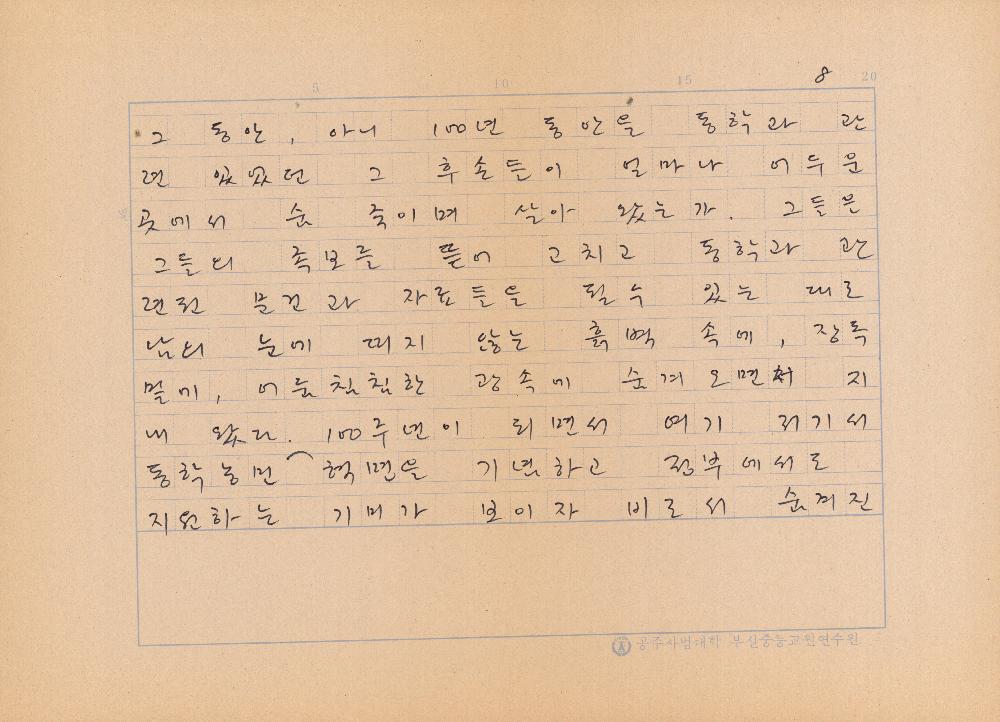 5 10 15 8 20
그 동안, 아니 100년 동안을 동학과 관
련 있었던 그 후손들이 얼마나 어두운
곳에서 숨 죽이며 살아 왔는가. 그들은
그들의 족보를 뜯어 고치고 동학과 관
련된 문건과 자료들을 될 수 있는 대로
남의 눈에 띠지 않는 흙벽 속에, 장독
밑에, 어둠침침한 광속에 숨겨 오면서 지
내 왔다. 100주년이 되면서 여기 저기서
동학농민 혁명을 기념하고 정부에서도
지원하는 기미가 보이자 비로서 숨겨진
공주사범대학 부설중등교원연수원